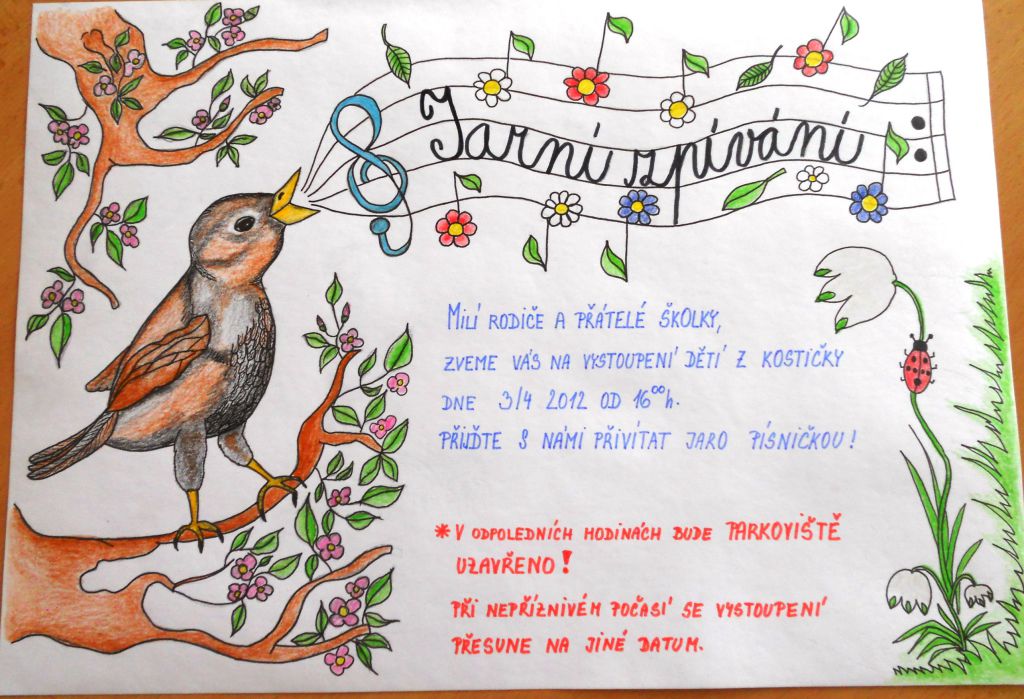 Jarní zpívání
MILÍ RODIČE A PŘÁTELÉ ŠKOLKY,
ZVEME VÁS NA VYSTOUPENÍ DĚTÍ Z KOSTIČKY
DNE 3/4 2012 OD 16⁰⁰h.
PŘIJĎTE S NÁMI PŘIVÍTAT JARO PÍSNIČKOU!
* V ODPOLEDNÍCH HODINÁCH BUDE PARKOVIŠTĚ
UZAVŘENO!
PŘI NEPŘÍZNIVÉM POČASÍ SE VYSTOUPENÍ
PŘESUNE NA JINÉ DATUM.